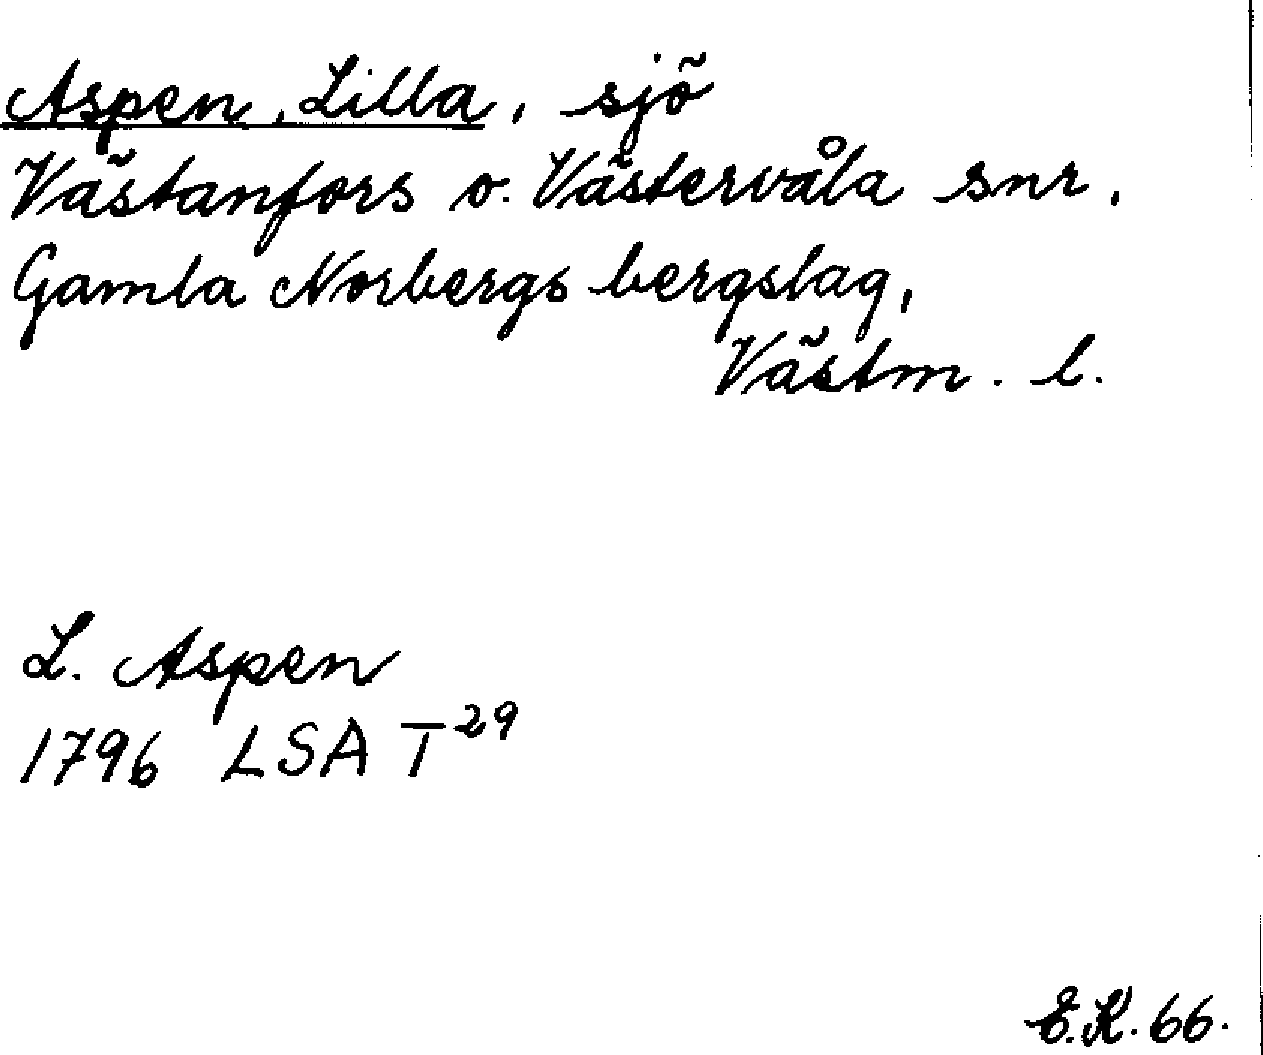 Aspen, Lilla, sjö
Västanfors o. Västervåla snr,
Gamla Norbergs bergslag,
Västm. l.
L. Aspen
1796 LSA T²⁹
E.K. 66.